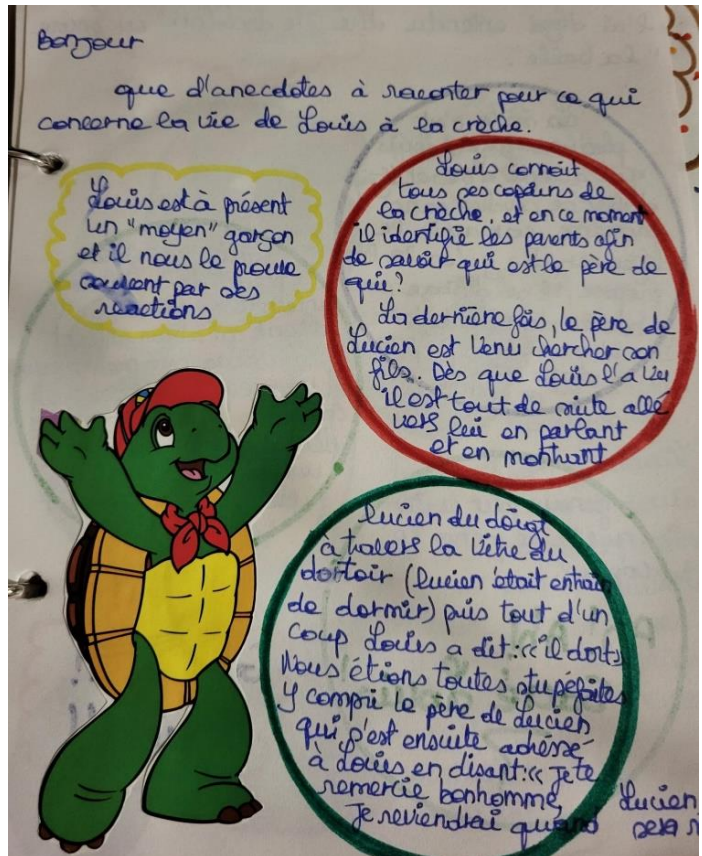 Bonjour
que d'anecdotes à raconter pour ce qui
concerne la vie de Louis à la crèche.
Louis est à présent
un "moyen" garçon
et il nous le prouve
souvent par ses
réactions
Louis connait
tous ses copains de
la crèche, et en ce moment
il identifie les parents afin
de savoir qui est le père de
qui?
La dernière fois, le père de
Lucien est venu chercher son
fils. Dès que Louis l'a vu
il est tout de suite allé
vers lui en parlant
et en montrant
Lucien du doigt
à travers la vitre du
dortoir (Lucien était entrain
de dormir) puis tout d'un
coup Louis a dit: «il dort»
Nous étions toutes stupéfaites
Y compri le père de Lucien
qui s'est ensuite adréssé
à Louis en disant: «Je te
remercie bonhomme,
Je reviendrai quand Lucien
sera